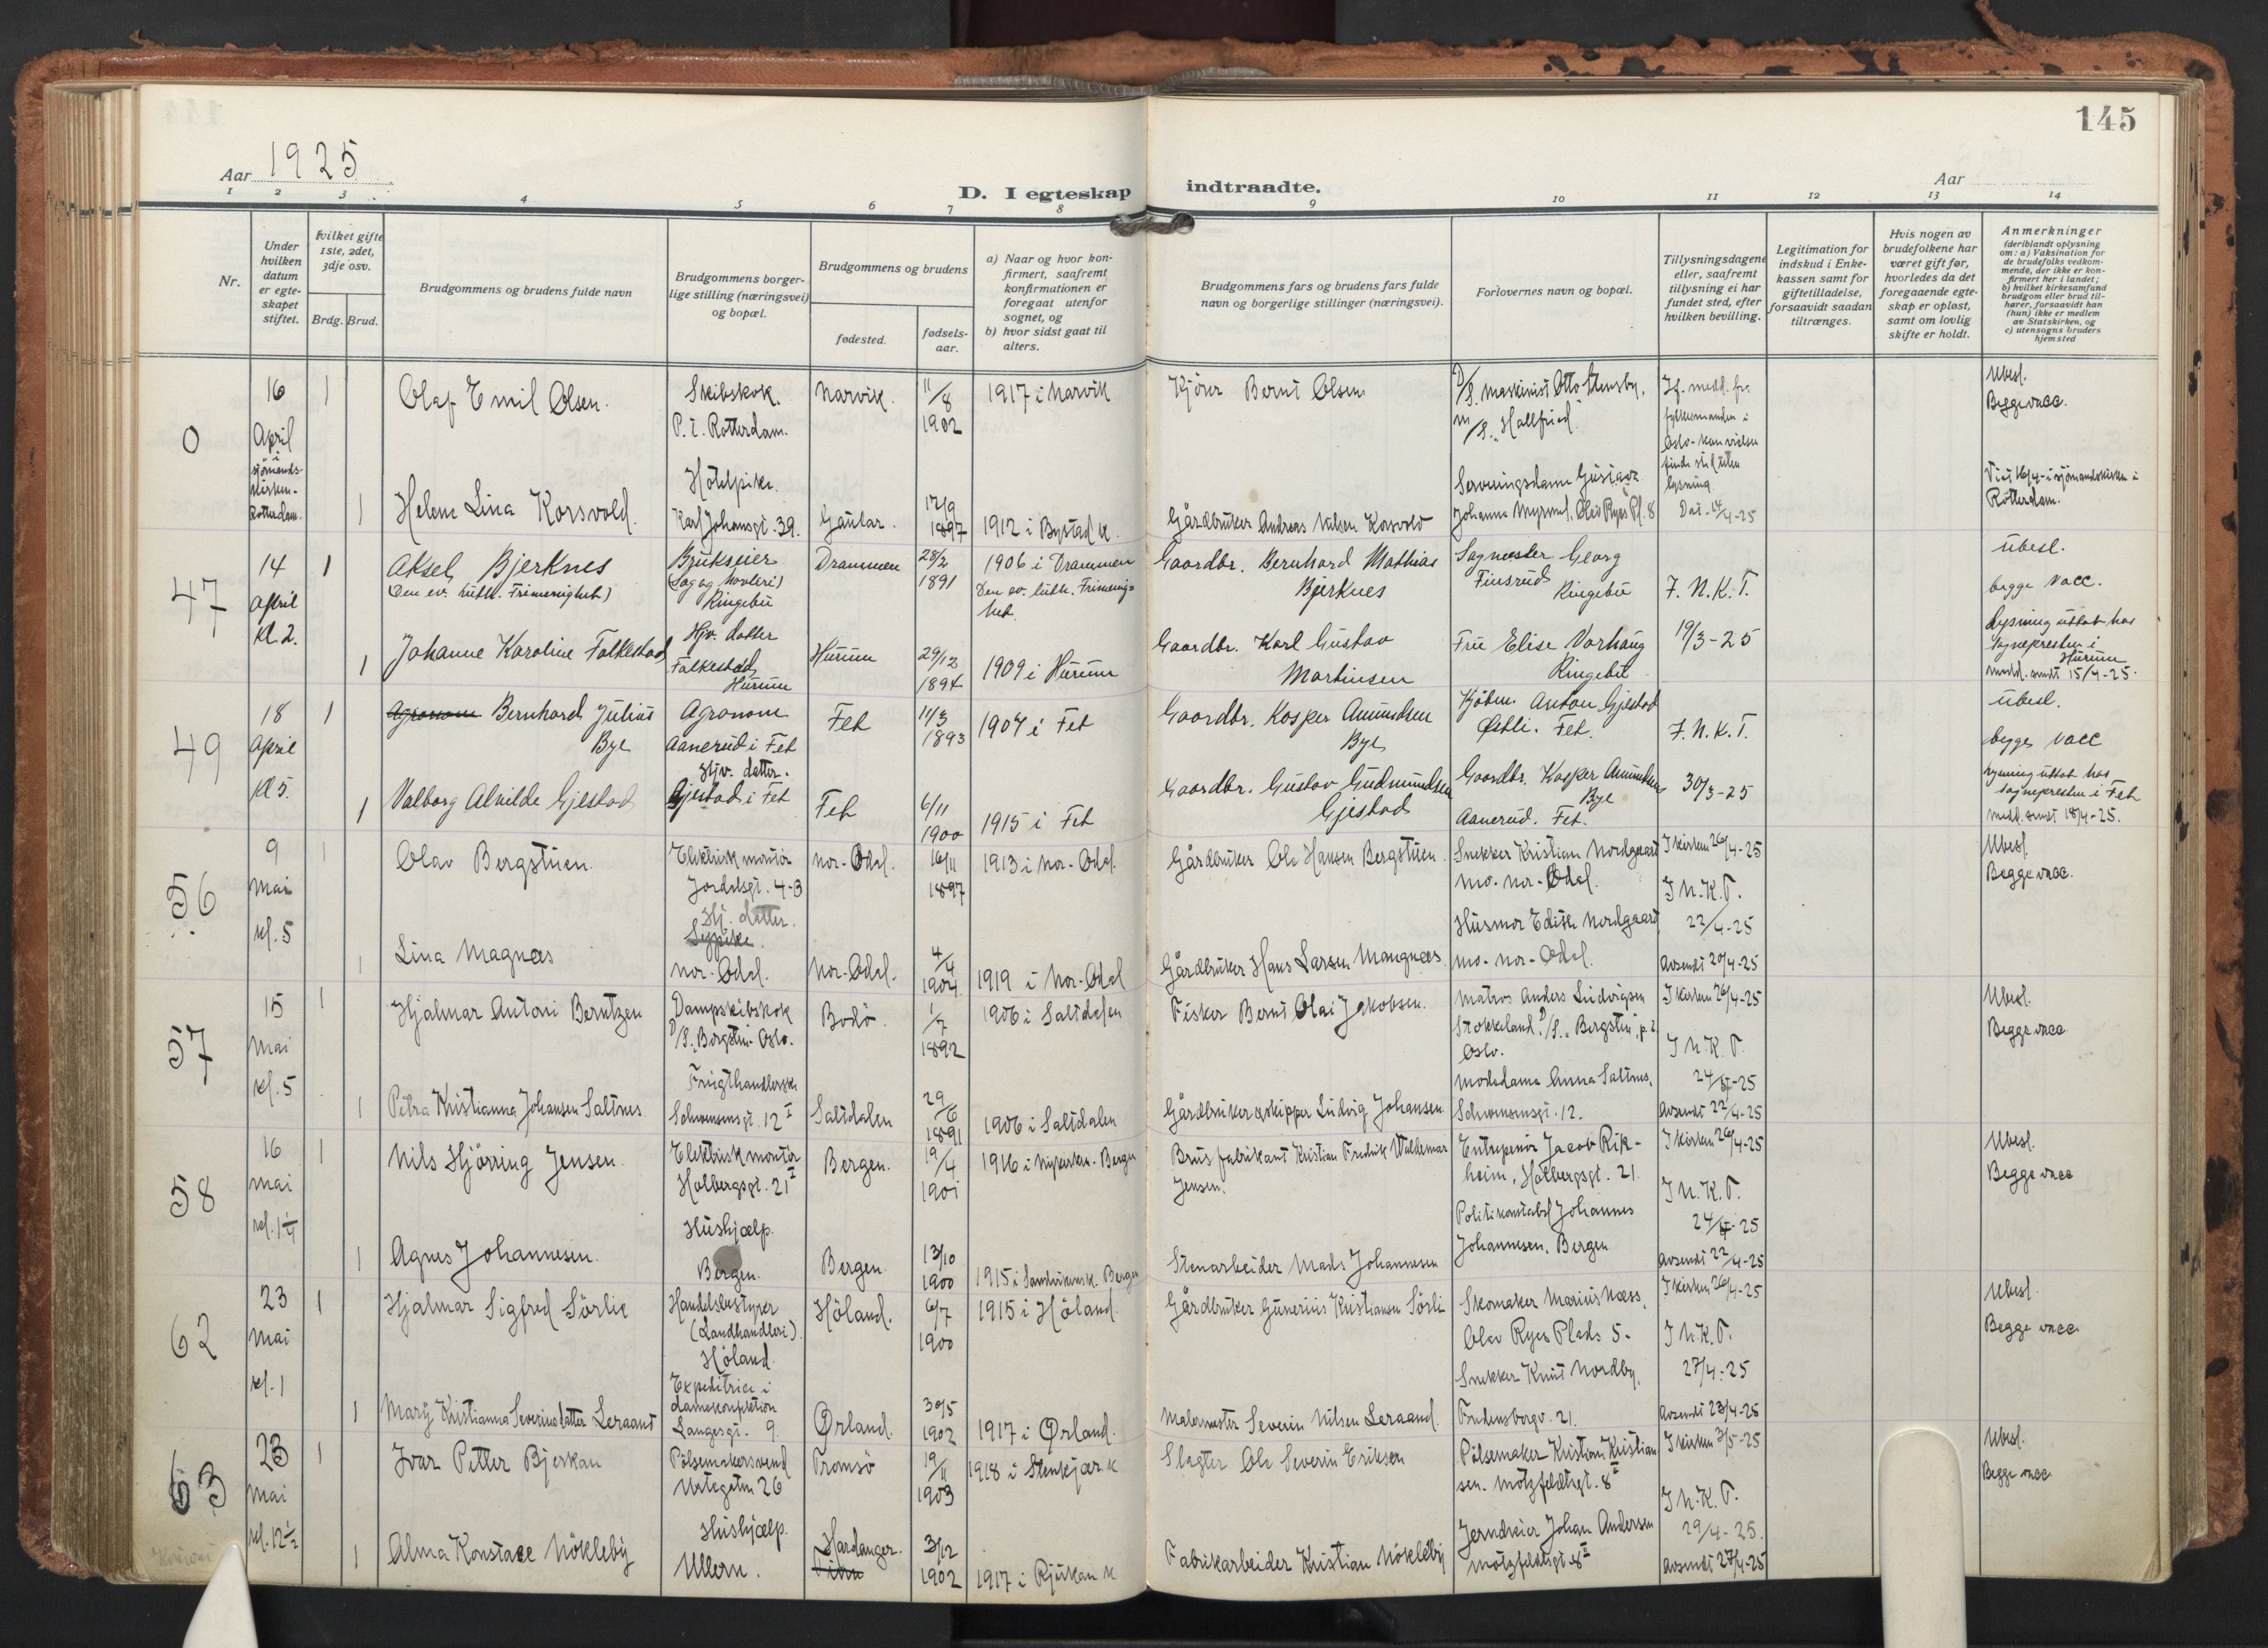 145
Aar 1925
D. I egteskap indtraadte.
Aar
1 2 3 4 5 6 7 8 9 10 11 12 13 14
Nr.
Under hvilken datum er egteskapet stiftet.
Hvilket gifte 1ste, 2det, 3dje osv.
Brdg. Brud.
Brudgommens og brudens fulde navn
Brudgommens borgerlige stilling (næringsvei) og bopæl.
Brudgommens og brudens
fødested.
fødselsaar.
a) Naar og hvor konfirmert, saafremt konfirmationen er foregaat utenfor sognet, og
b) hvor sidst gaat til alters.
Brudgommens fars og brudens fars fulde navn og borgerlige stillinger (næringsvei).
Forlovernes navn og bopæl.
Tillysningsdagene eller, saafremt tillysning ei har fundet sted, efter hvilken bevilling.
Legitimation for indskud i Enkekassen samt for giftetilladelse, forsaavidt saadan tiltrænges.
Hvis nogen av brudefolkene har været gift før, hvorledes da det foregaaende egteskap er opløst, samt om lovlig skifte er holdt.
Anmerkninger
(deriblandt oplysning om: a) Vaksination for de brudefolks vedkommende, der ikke er konfirmert her i landet; b) hvilket kirkesamfund brudgom eller brud tilhører, forsaavidt han (hun) ikke er medlem av Statskirken, og c) utensogns bruders hjemsted
0
16 April i sjömandskirken - Rotterdam.
1 Olaf Emil Olsen. Skibskok. P.t. Rotterdam. Narvik. 11/8 1902 1917 i Narvik
Kjörer Bernt Olsen D/S. maskinist Otto Stensby, M/S. "Hallfried" Ubesl. Begge vacc.
1 Helene Lina Korsvold. Hotelpike. Karl Johansgt. 39. Gaular. 12/9 1897 1912 i Bystad k.
Gårdbruker Andreas Nilsen Korsvold Serveringsdame Gustava Johanna Myrvold, Olav Ryes Pl. 8
Dat. 14/4-25 Viet 16/4 - i sjömandskirken i Rotterdam.
47
14 April Kl. 2.
1 Aksel Bjerknes (Den ev. luth. Frimenighet) Brukseier (Sag og hovleri) Ringebu Drammen 28/2 1891 1906 i Drammen Den ev. luth. Frimenighet.
Gaardbr. Bernhard Mathias Bjerknes Sagmester Georg Finsrud Ringebu I. N. K. T. ubesl. begge vacc.
1 Johanne Karoline Falkestad Hjv. datter Falkestad, Hurum Hurum 29/12 1894 1909 i Hurum
Gaardbr. Karl Gustav Martinsen Fru Elise Vorhaug Ringebu 19/3-25
Lysning uttat hos sognepresten i Hurum medd. sendt 15/4-25.
49
18 April Kl 5.
1 Bernhard Julius Bye Agronom Aanerud i Fet Fet 11/3 1893 1907 i Fet
Gaardbr. Kasper Amundsen Bye Kjöbm. Anton Gjestad Østli. Fet. I. N. K. T. ubesl. begge vacc
1 Valborg Alvilde Gjestad Hjv. datter. Gjestad i Fet Fet 6/11 1900 1915 i Fet
Gaardbr. Gustav Gudmundsen Gjestad Gaardbr. Kasper Amundsen Bye Aanerud. Fet. 30/3-25
Lysning uttat hos sognepresten i Feh medd. sendt 18/4-25.
56
9 Mai kl. 5
1 Olav Bergstuen. Elektrisk montör Jordalsgt. 4-3 Nor-Odal. 16/11 1897 1913 i Nor-Odal.
Gårdbruker Ole Hansen Bergstuen. Snekker Kristian Nordgaard Mo. Nor-Odal. I kirken 26/4-25 I N.K.T. Ubesl. Begge vacc.
1 Lina Magnæs Hj. datter. Sypike. Nor-Odal. Nor-Odal. 4/4 1904 1919 i Nor-Odal
Gårdbruker Hans Larsen Mangnæs. Husmor Edith Nordgaard Mo-Nor-Odal. 22/4-25 Avsendt 20/4-25
57
15 Mai kl. 5
1 Hjalmar Antoni Berntzen Dampskibskok D/S. "Bergstin" Oslo. Bodö. 1/7 1892 1906 i Saltdalen
Fisker Bernt Olai Jakobsen. Matros Anders Ludvigsen Stokkeland. D/S. "Bergstin", p.t. Oslo. I kirken 26/4-25 I N.K.T. Ubesl. Begge vacc
1 Petra Kristianna Johansen Saltnes. Frugthandlerske Schwensensgt. 12 I Saltdalen 29/6 1891 1906 i Saltdalen
Gårdbruker og skipper Ludvig Johansen Modedame Anna Saltnes, Schwensensgt. 12. 24/4-25 Avsendt 22/4-25
58
16 Mai kl. 1 1/4
1 Nils Hjörring Jensen. Elektrisk montör Holbergsgt. 21 I Bergen. 19/4 1901 1916 i Nykirken. Bergen
Brusfabrikant Kristian Fredrik Waldemar Jensen. Entreprenör Jacob Rikheim, Holbergsgt. 21. I kirken 26/4-25 I N.K.T. Ubesl. Begge vacc
1 Agnes Johannesen. Hushjælp. Bergen. Bergen. 13/10 1900 1915 i Sandvikensk. Bergen
Stenarbeider Mads Johannesen Politikonstabel Johannes Johannesen. Bergen 24/4-25 Avsendt 22/4-25
62
23 Mai kl. 1
1 Hjalmar Sigfred Sörlie Handelsbestyrer (Landhandleri). Höland. Höland. 6/7 1900 1915 i Höland.
Gårdbruker Gunerius Kristiansen Sörli Skomaker Marius Næss, Olav Ryes Plads 5. I kirken 26/4-25 I N.K.T. Ubesl. Begge vacc.
1 Mary Kristianna Severinsdatter Leraand Expeditrice i damekonfektion Langesgt. 9. Ørland. 30/5 1902 1917 i Ørland.
Malermester Severin Nilsen Leraand. Snekker Knut Nordby, Fredensborgv. 21. 27/4-25 Avsendt 23/4-25
63
23 Mai kl. 12 1/2
1 Ivar Petter Bjerkan Pölsemakersvend Urtegaten 26 Tromsö 19/11 1903 1918 i Stenkjær k
Slagter Ole Severin Eriksen Pölsemaker Kristian Kristiansen. Motzfeldtsgt. 8 I I kirken 3/5-25 I N.K.T. Ubesl. Begge vacc
1 Alma Konstance Nökleby Hushjælp. Ullern. Hardanger. 3/12 1902 1917 i Rjukan k
Fabrikarbeider Kristian Nökleby Jerndreier Johan Andersen Motzfeldtsgt. 8 II 29/4-25. Avsendt 27/4-25